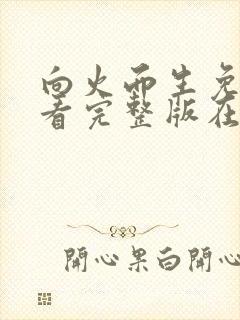 向火而生免
看完整版在
開心果白開心